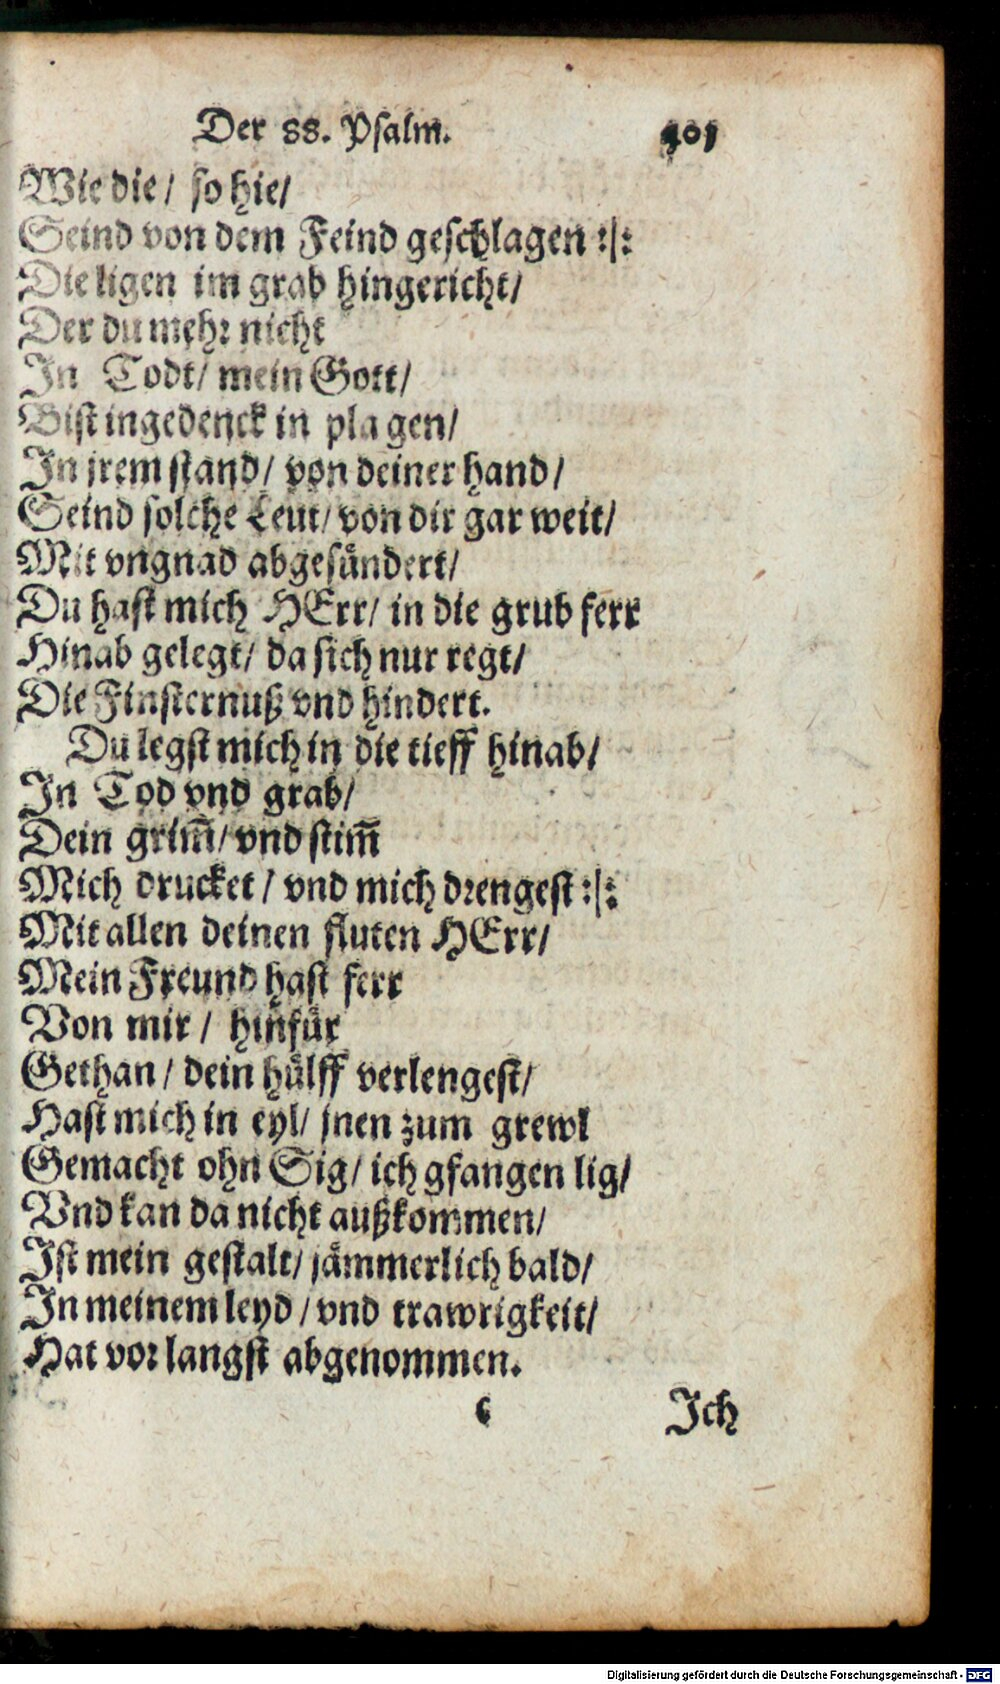 Der 88. Psalm. 401
Wie die / so hie /
Seind von dem Feind geschlagen :|:
Die ligen im grab hingericht /
Der du mehr nicht
In Todt / mein Gott /
Bist ingedenck in plagen /
In jrem stand / von deiner hand /
Seind solche Leut / von dir gar weit /
Mit vngnad abgesündert /
Du hast mich HErr / in die grub ferr
Hinab gelegt / da sich nur regt /
Die Finsternuß vnd hindert.
Du legst mich in die tieff hinab /
In Tod vnd grab /
Dein grim̃ / vnd stim̃
Mich drucket / vnd mich drengest :|:
Mit allen deinen fluten HErr /
Mein Freund hast ferr
Von mir / hinfür
Gethan / dein hülff verlengest /
Hast mich in eyl / jnen zum grewl
Gemacht ohn Sig / ich gfangen lig /
Vnd kan da nicht außkommen /
Ist mein gestalt / jämmerlich bald /
In meinem leyd / vnd trawrigkeit /
Hat vor langst abgenommen.
Ich
Digitalisierung gefördert durch die Deutsche Forschungsgemeinschaft - DFG